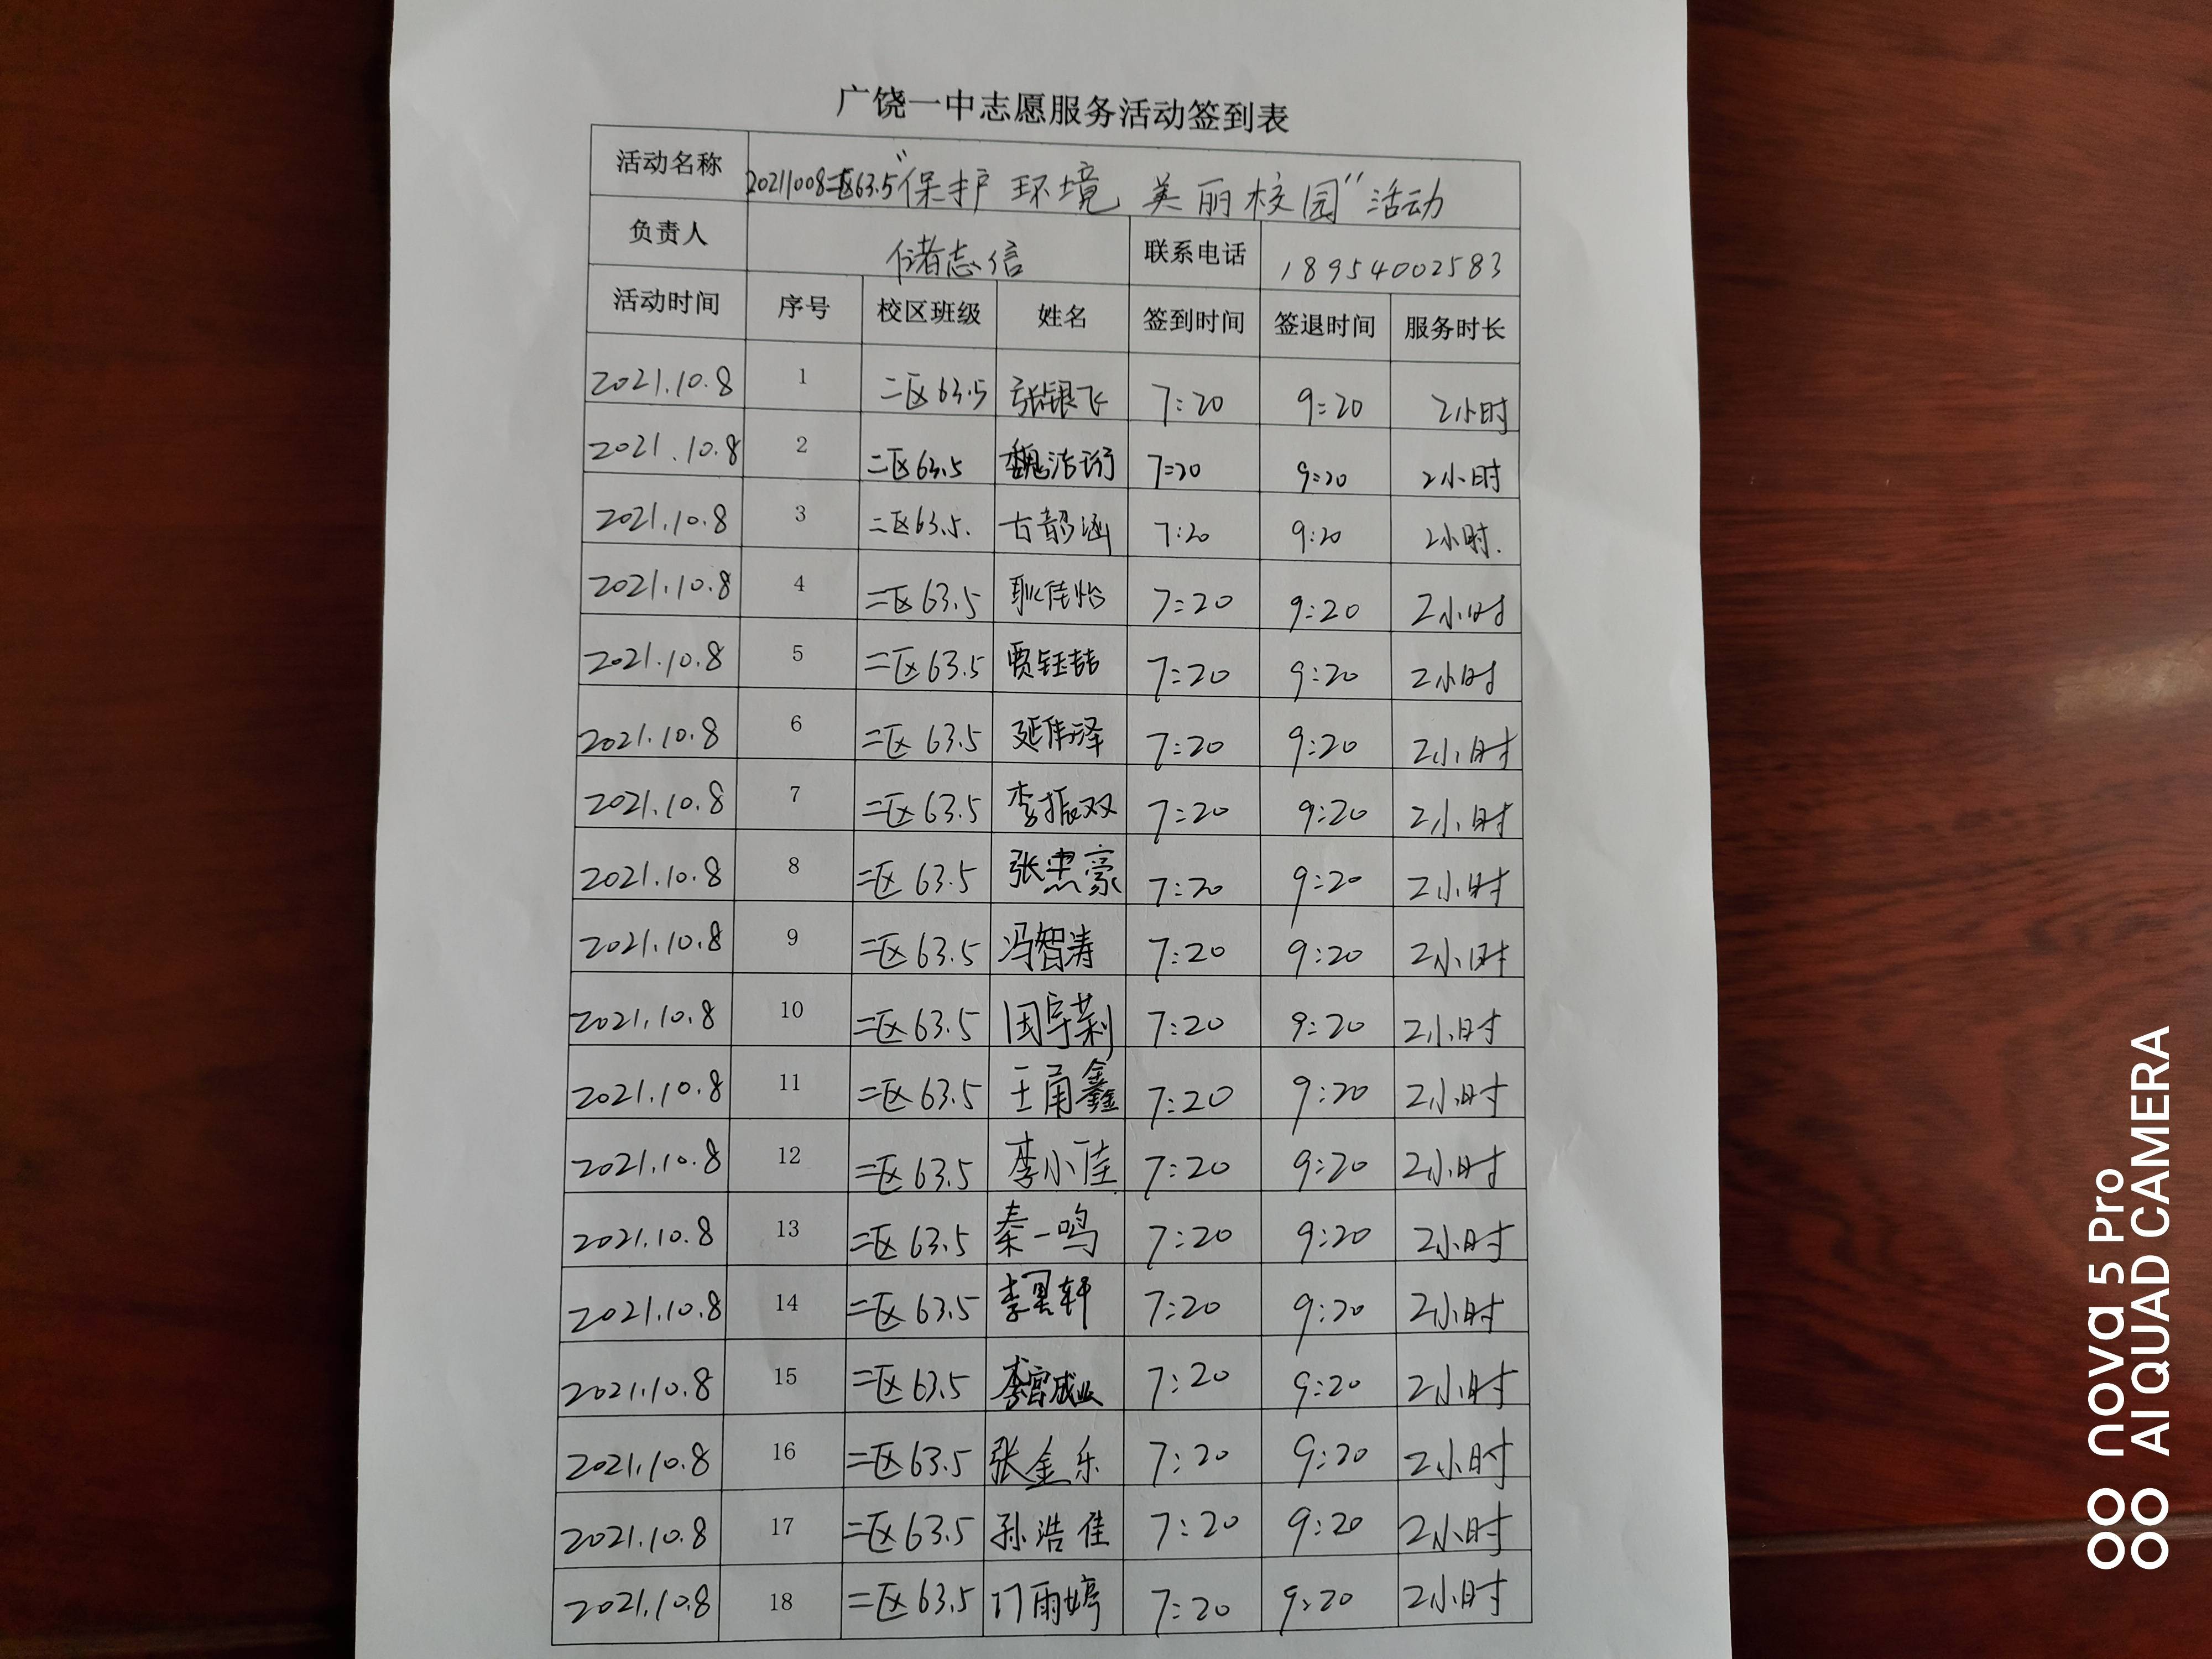 广饶一中志愿服务活动签到表
活动名称 20211008二区63.5“保护环境 美丽校园”活动
负责人 储志信 联系电话 18954002583
活动时间 序号 校区班级 姓名 签到时间 签退时间 服务时长
2021.10.8 1 二区63.5 张银飞 7:20 9:20 2小时
2021.10.8 2 二区63.5 魏洁珩 7:20 9:20 2小时
2021.10.8 3 二区63.5. 古韵涵 7:20 9:20 2小时.
2021.10.8 4 二区63.5 耿佳怡 7:20 9:20 2小时
2021.10.8 5 二区63.5 贾钰喆 7:20 9:20 2小时
2021.10.8 6 二区63.5 延伟泽 7:20 9:20 2小时
2021.10.8 7 二区63.5 李振双 7:20 9:20 2小时
2021.10.8 8 二区63.5 张忠豪 7:20 9:20 2小时
2021.10.8 9 二区63.5 冯智涛 7:20 9:20 2小时
2021.10.8 10 二区63.5 7:20 9:20 2小时
2021.10.8 11 二区63.5 王甬鑫 7:20 9:20 2小时
2021.10.8 12 二区63.5 李小佳 7:20 9:20 2小时
2021.10.8 13 二区63.5 秦一鸣 7:20 9:20 2小时
2021.10.8 14 二区63.5 7:20 9:20 2小时
2021.10.8 15 二区63.5 7:20 9:20 2小时
2021.10.8 16 二区63.5 张金乐 7:20 9:20 2小时
2021.10.8 17 二区63.5 孙浩佳 7:20 9:20 2小时
2021.10.8 18 二区63.5 门雨婷 7:20 9:20 2小时
nova 5 Pro
AI QUAD CAMERA